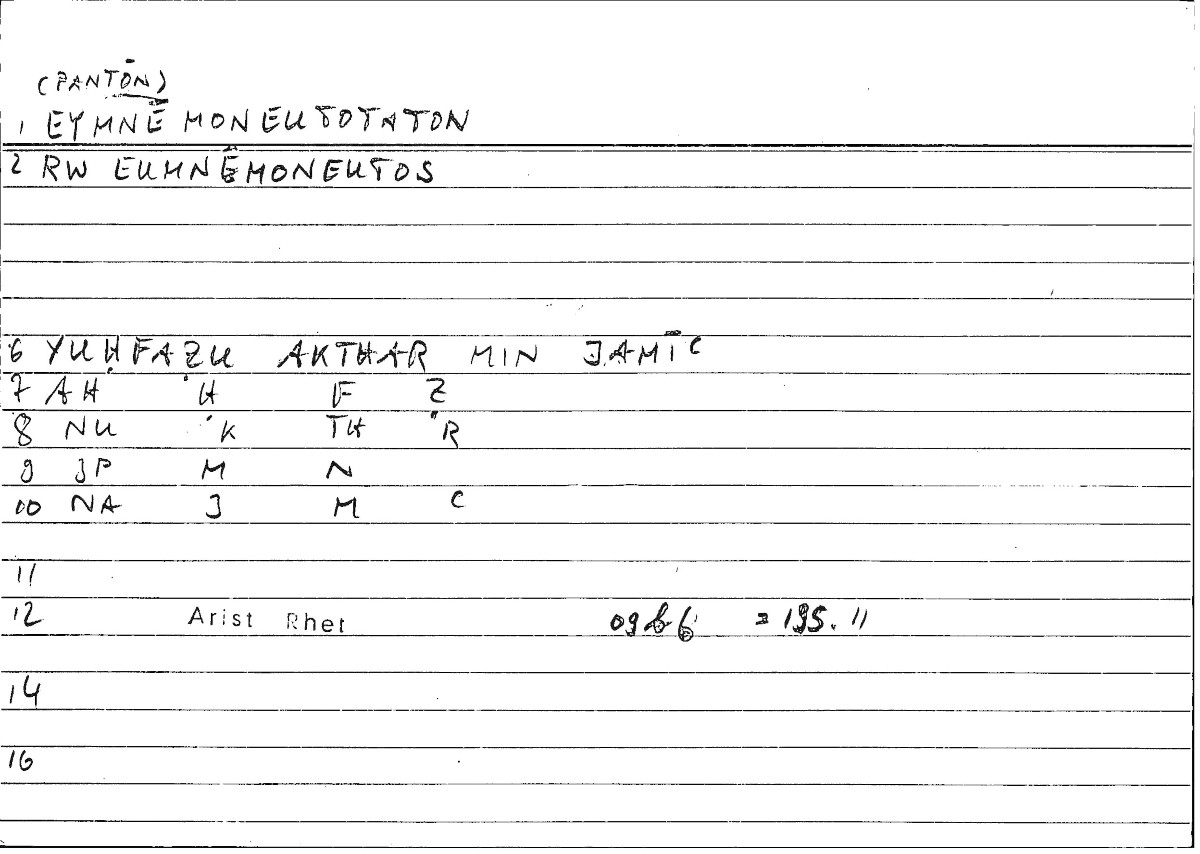 (PANTŌN)
1 EYMNĒMONEUTOTATON
2 RW EUMNĒMONEUTOS
6 YUḤFAẒU AKTHAR MIN JAMĪC
7 AH Ḥ F Ẓ
8 NU K TH R
9 JP M N
10 NA J M C
11
12 Arist Rhet = 195.11
14
16